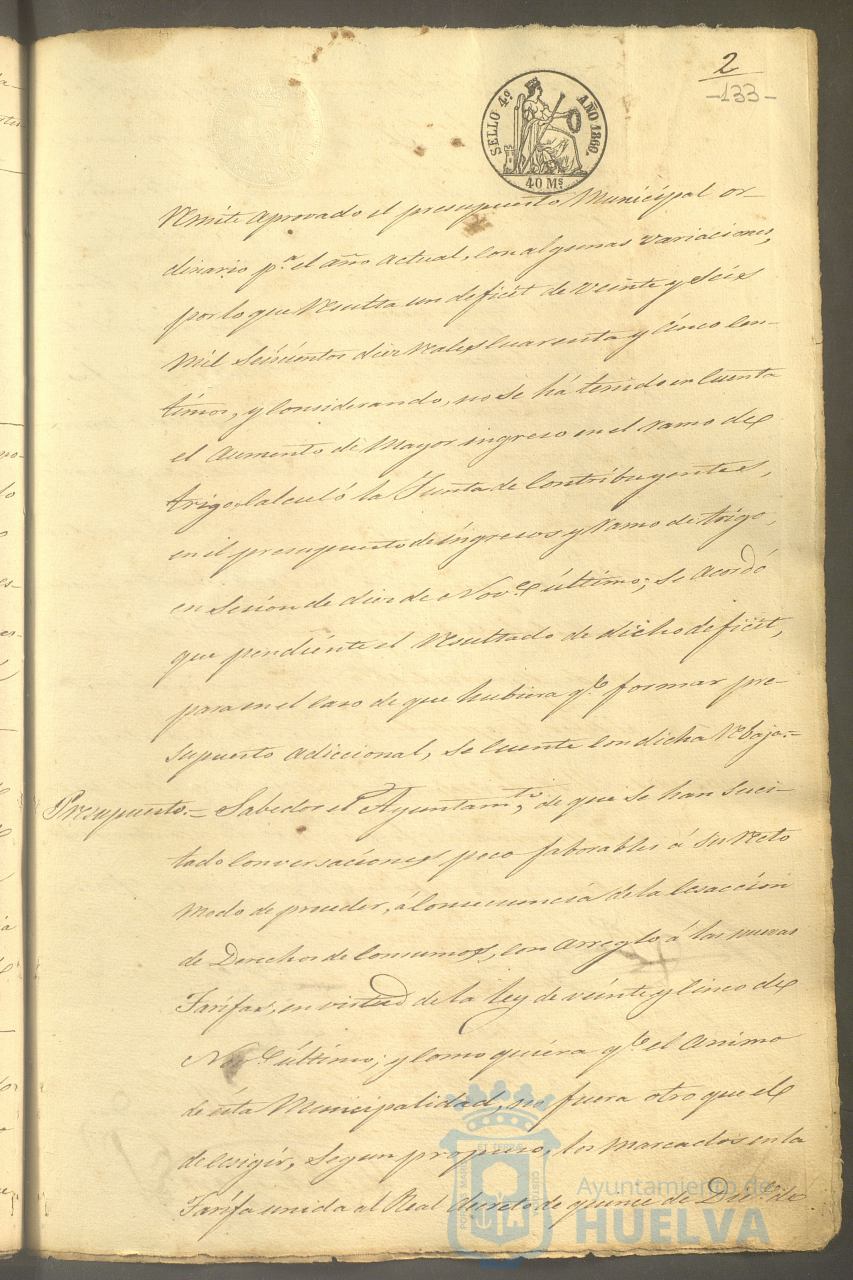 2
-133-
SELLO 4º AÑO 1860.
40 Ms
Remite aprovado el presupuesto Municipal or-
dinario pª el año actual, con algunas variaciones,
por lo que resulta un deficit de veinte y seis
mil seiscientos diez reales cuarenta y cinco cen-
timos, y considerando, no se há tenido en cuenta
el aumento de mayor ingreso en el ramo de
trigo calculó la Junta de Contribuyentes,
en el presupuesto de ingresos y ramo de trigo,
en sesion de diez de Nove último; se acordó
que pendiente el resultado de dicho deficit,
para en el caso de que hubiera qe formar pre-
supuesto adiccional, se cuente con dicha rebaja.=
Presupuesto.= Sabedor el Ayuntamto, de que se han suci-
tado conversaciones poco faborables á su recto
modo de proceder, á consecuencia de la ecsaccion
de Derechos de Consumos, con arreglo á las nuevas
Tarifas, en virtud de la ley de veinte y cinco de
Nove último; y como quiera qe el animo
de ésta Municipalidad, no fuera otro que él
de ecsigir, segun propuso, los marcados en la
Tarifa unida al Real decreto de quince de Dice de
Ayuntamiento de
HUELVA